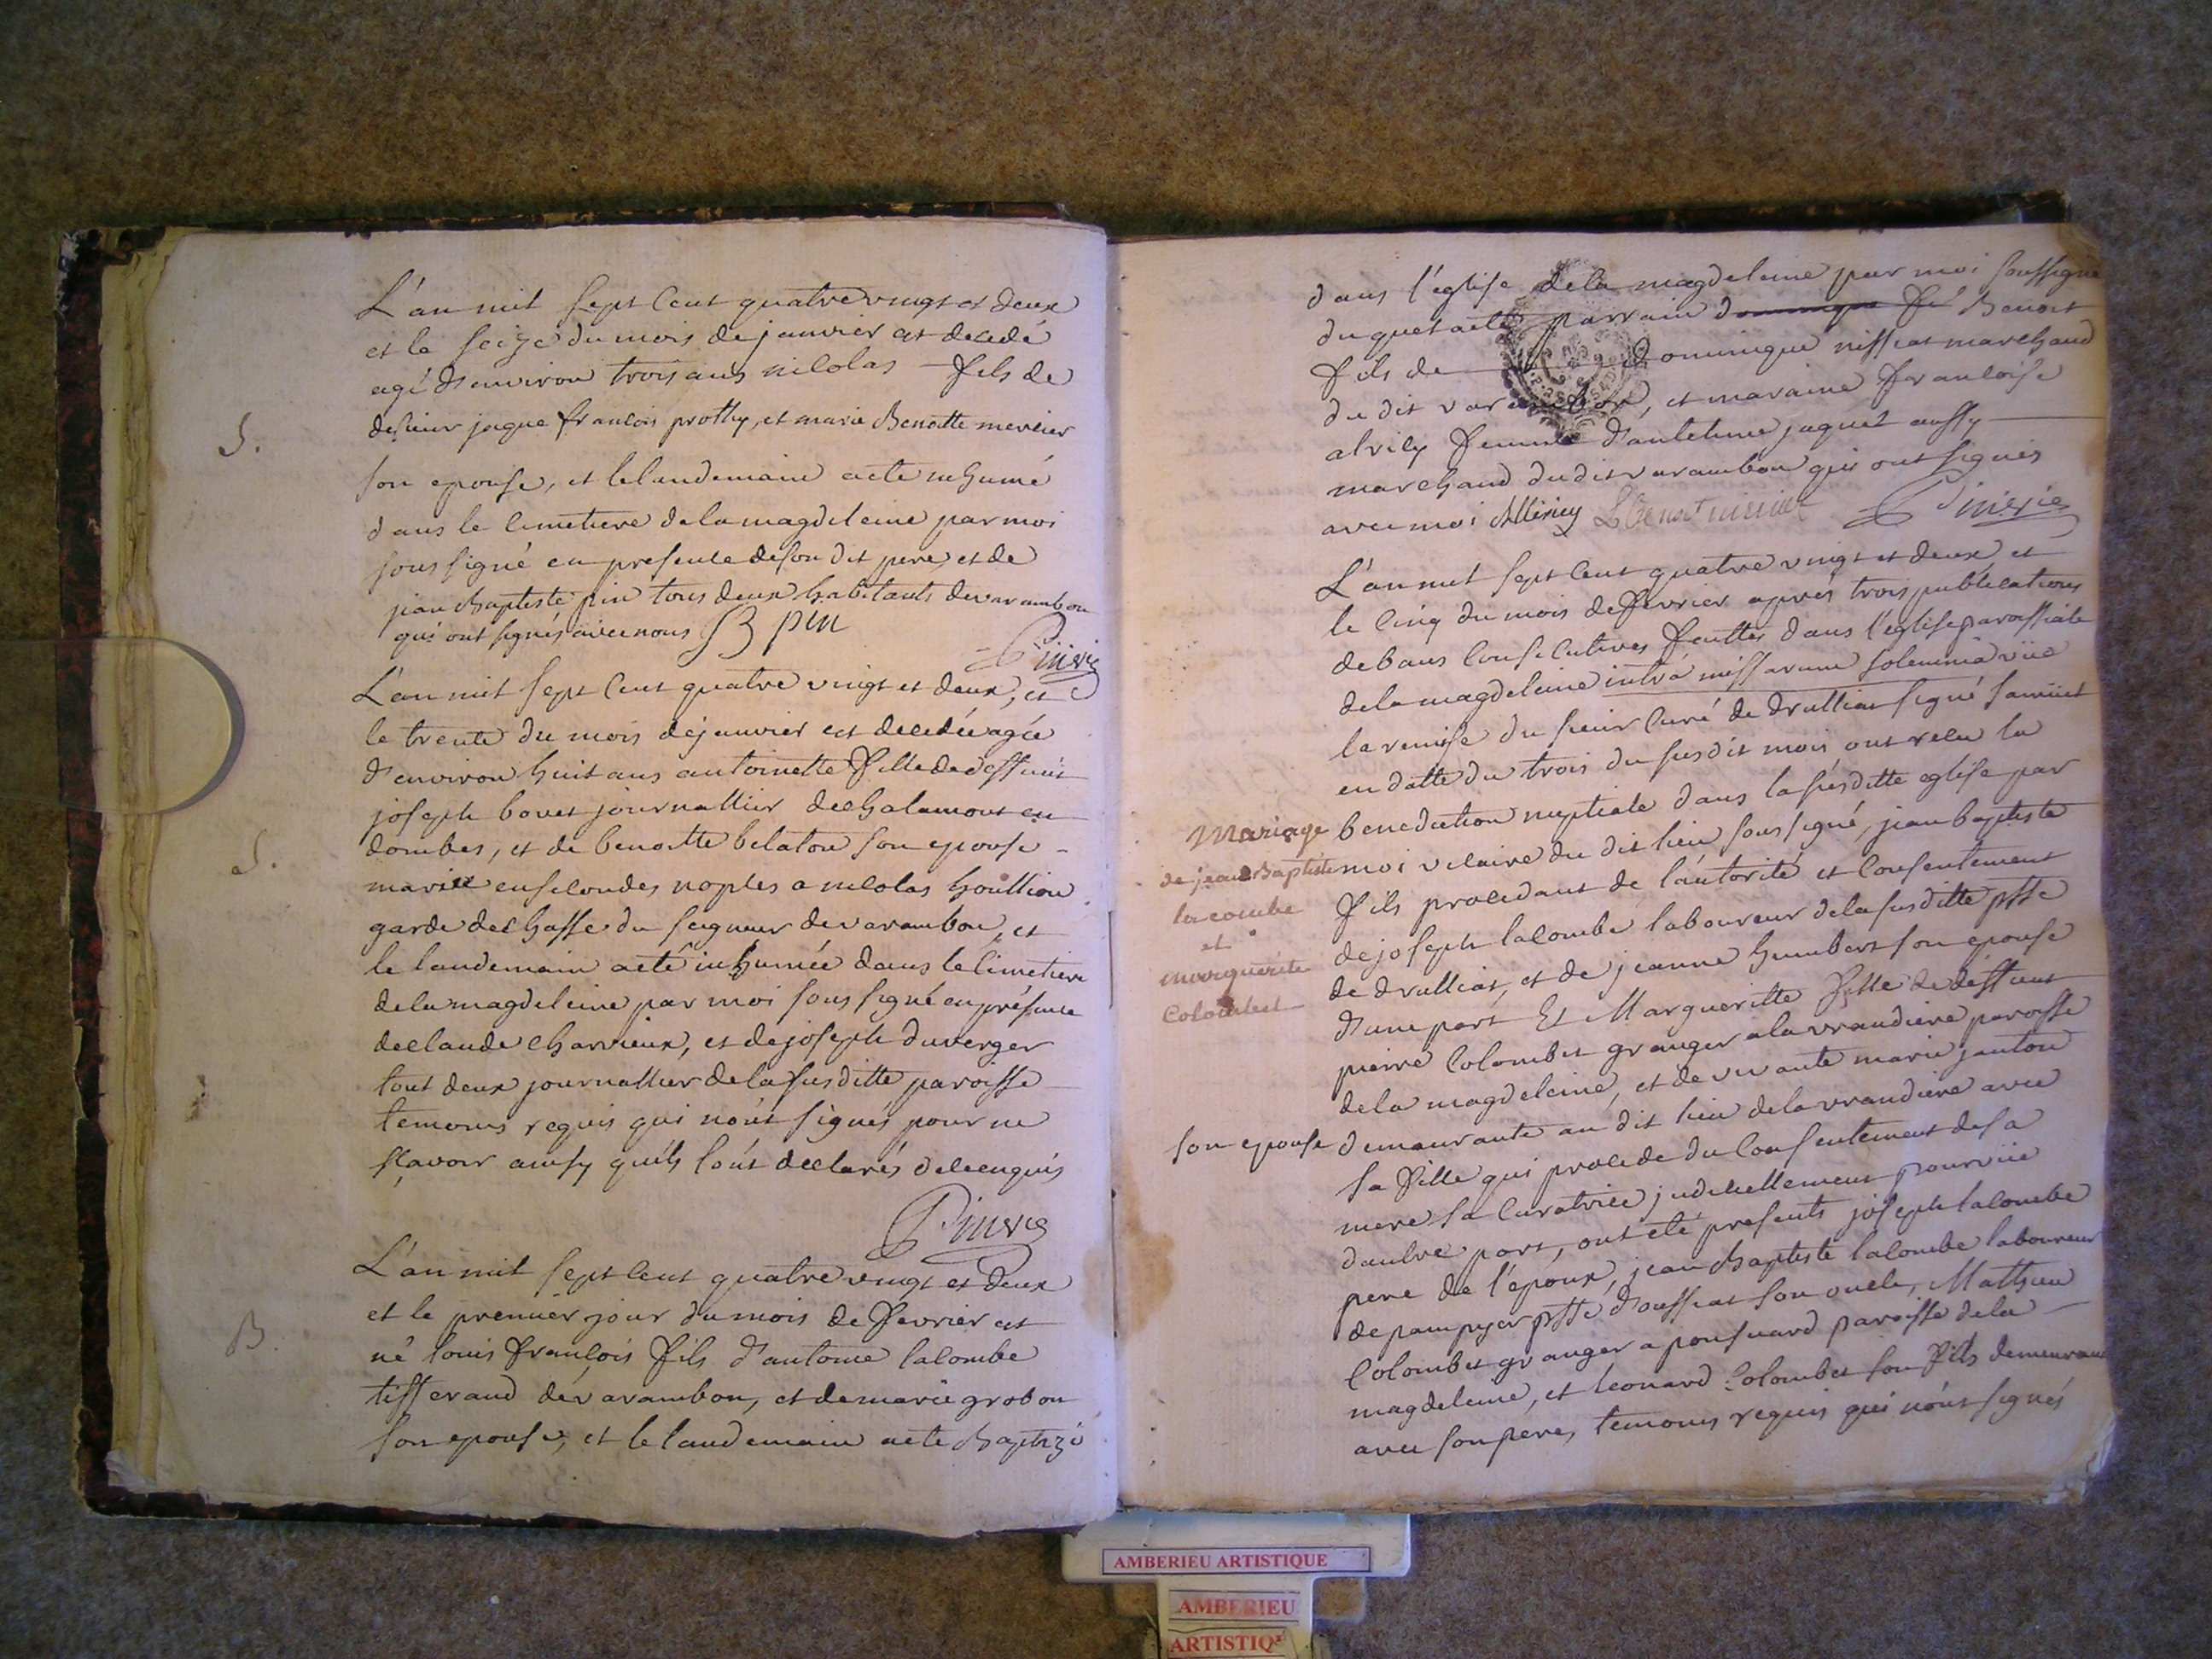 L'an mil sept cent quatre vingt et deux
et le seize du mois de janvier est decedé
agé d'environ trois ans nicolas fils de
S.
de sieur jaque francois prothy, et marie Benoitte mercier
son epouse, et le landemain a eté inhumé
dans le cimetiere de la magdeleine par moi
soussigné en presence de son dit pere, et de
jean baptiste pin tous deux habitants de varambon
qui ont signés avec nous B pin
L'an mil sept cent quatre vingt et deux, et
le trente du mois de janvier est decedée agée
d'environ huit ans antoinette fille de deffunt
joseph bovet journallier de chalamont en
S.
dombes, et de benoitte belaton son epouse
mariée en secondes noples a nicolas
garde de chasse du seigneur de varambon, et
le landemain a eté inhumée dans le cimetiere
de la magdeleine par moi sous signé en présence
de claude charvieux, et de joseph duverger
tout deux journallier de la susditte paroisse
temoins requis qui n'ont signés pour ne
sçavoir ainsy qu'ils l'ont declarés de ce enquis
L'an mil sept cent quatre vingt et deux
et le premier jour du mois de fevrier est
B.
né louis françois fils d'antoine lacombe
tisserand de varambon, et de marie grobon
son epouse, et le landemain a eté baptizé
dans l'église de la magdeleine par moi soussigné
duquel a eté parrain Benoit
fils de dominique nissiat marchand
du dit varambon, et maraine francoise
alriey femme d'anthelme jaquet aussy
marchand du dit varambon qui ont signés
avec moi
L'an mil sept cent quatre vingt et deux, et
le cinq du mois de fevrier après trois publications
de bans consecutives faittes dans l'église paroissiale
de la magdeleine intra missarum solemnia vüe
la remise du sieur curé de druilliat signé
en datte du trois du susdit mois ont recu la
Mariage benediction nuptiale dans la susditte eglise par
de jean Baptiste moi vicaire du dit lieu sous signé, jean baptiste
lacombe fils procedant de l'autorité et consentement
et de joseph lacombe laboureur de la susditte psse
marguerite de druilliat, et de jeanne humbert son epouse
Colombet d'une part Et Margueritte fille de deffunt
pierre Colombet granger a la vrandiere paroisse
de la magdeleine, et de vivante marie janton
son epouse demeurante au dit lieu de la vrandiere avec
sa fille qui procede du consentement de sa
mere sa curatrice judiciellement pourvüe
d'autre part, ont eté presents joseph lacombe
pere de l'epoux, jean baptiste lacombe laboureur
de pampier psse d'oussiat son oncle, Mathieu
Colombet granger a ponsuard paroisse de la
magdeleine, et leonard Colombet son fils demeurant
avec son pere, temoins requis qui n'ont signés
AMBERIEU ARTISTIQUE
AMBERIEU
ARTISTIQ